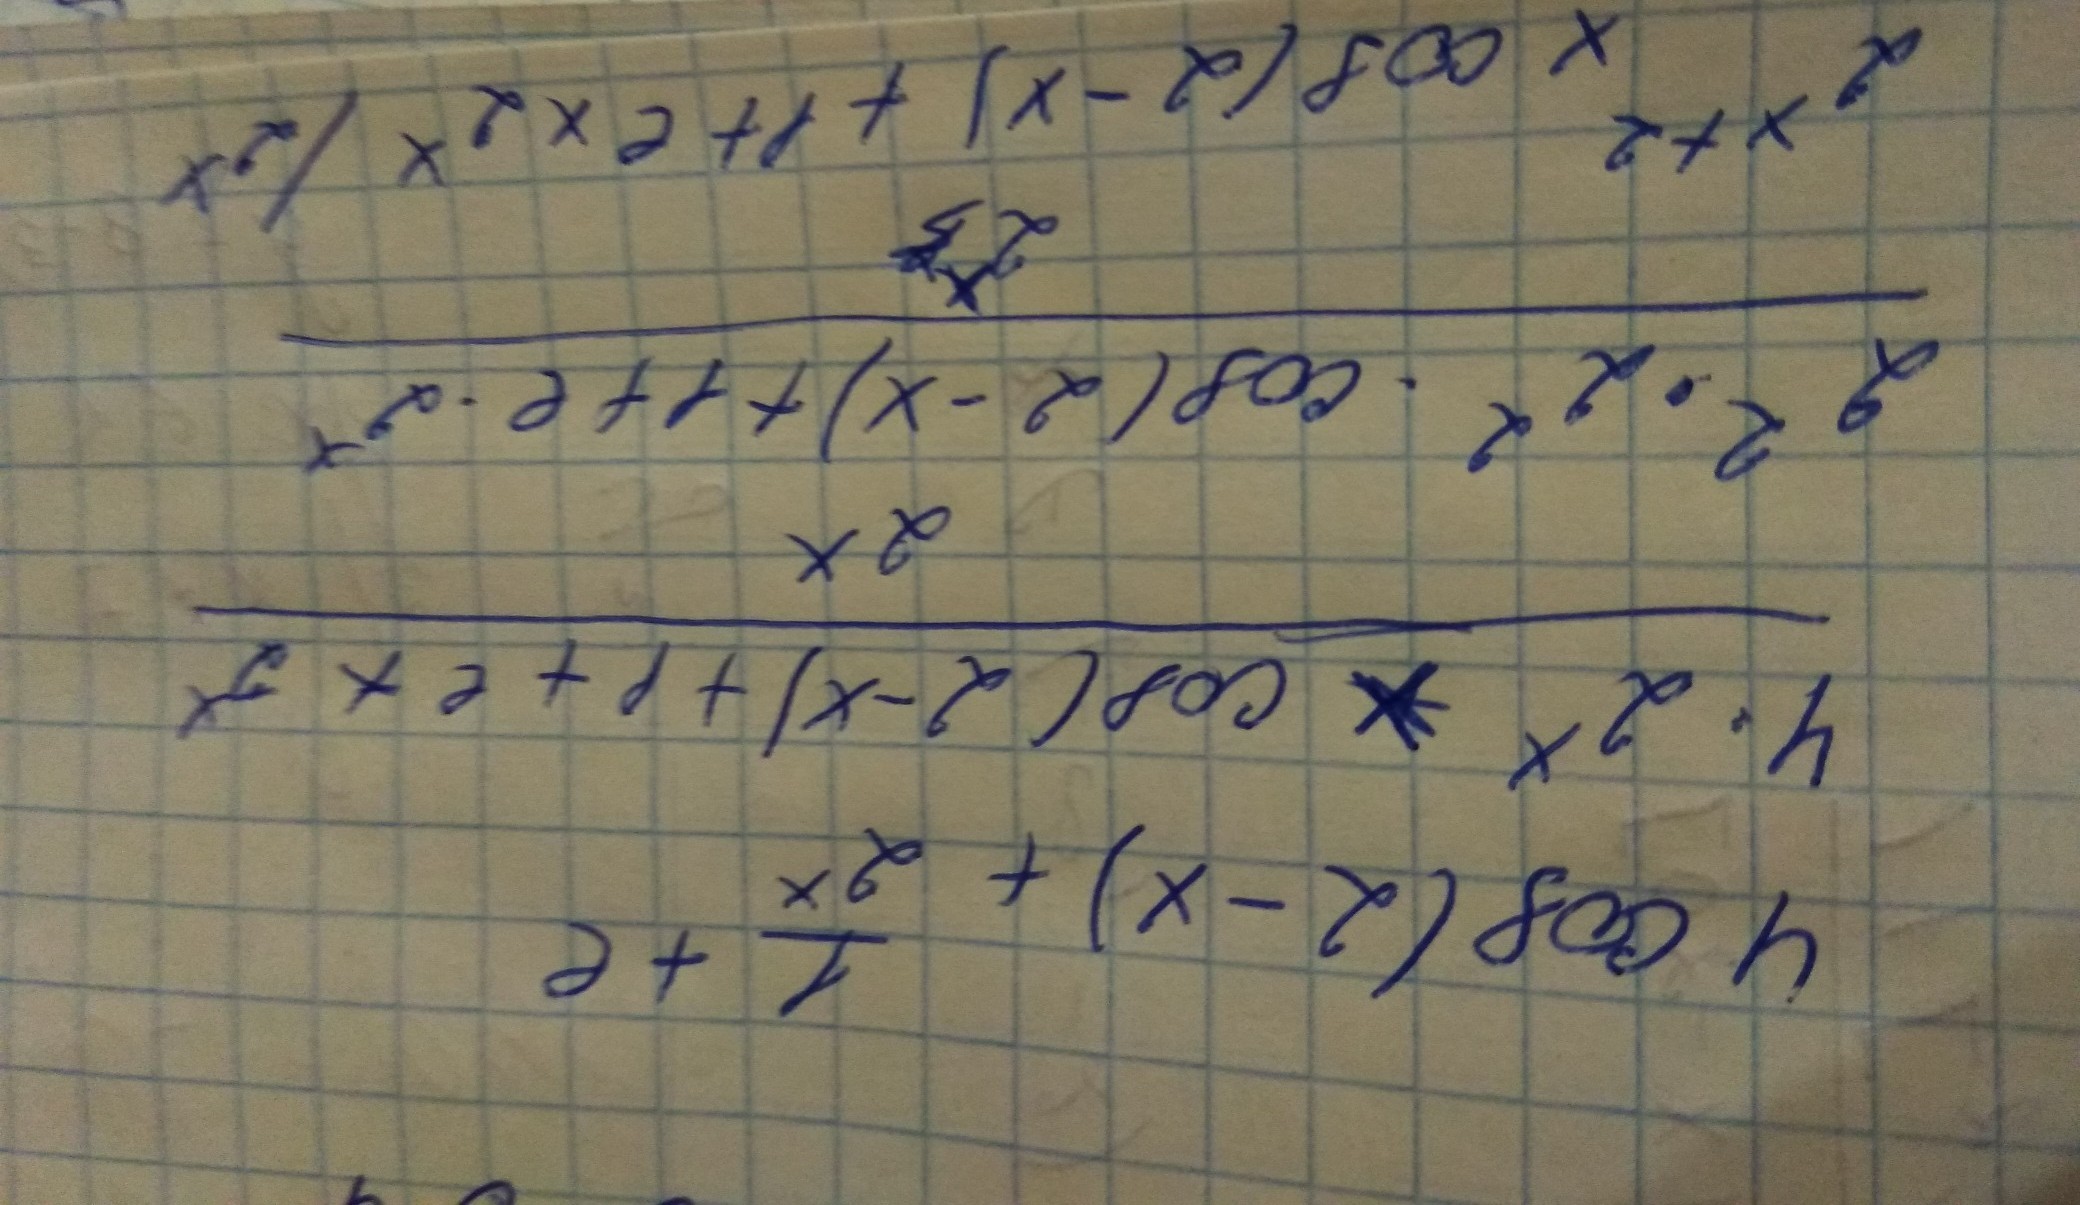 4 cos(2-x) + 1/2ˣ + e
4·2ˣ cos(2-x)+1+e×2ˣ
2ˣ
2²·2²·cos(2-x)+1+e·2ˣ
2ˣ
2ˣ⁺² × cos(2-x)+1+e×2ˣ /2ˣ